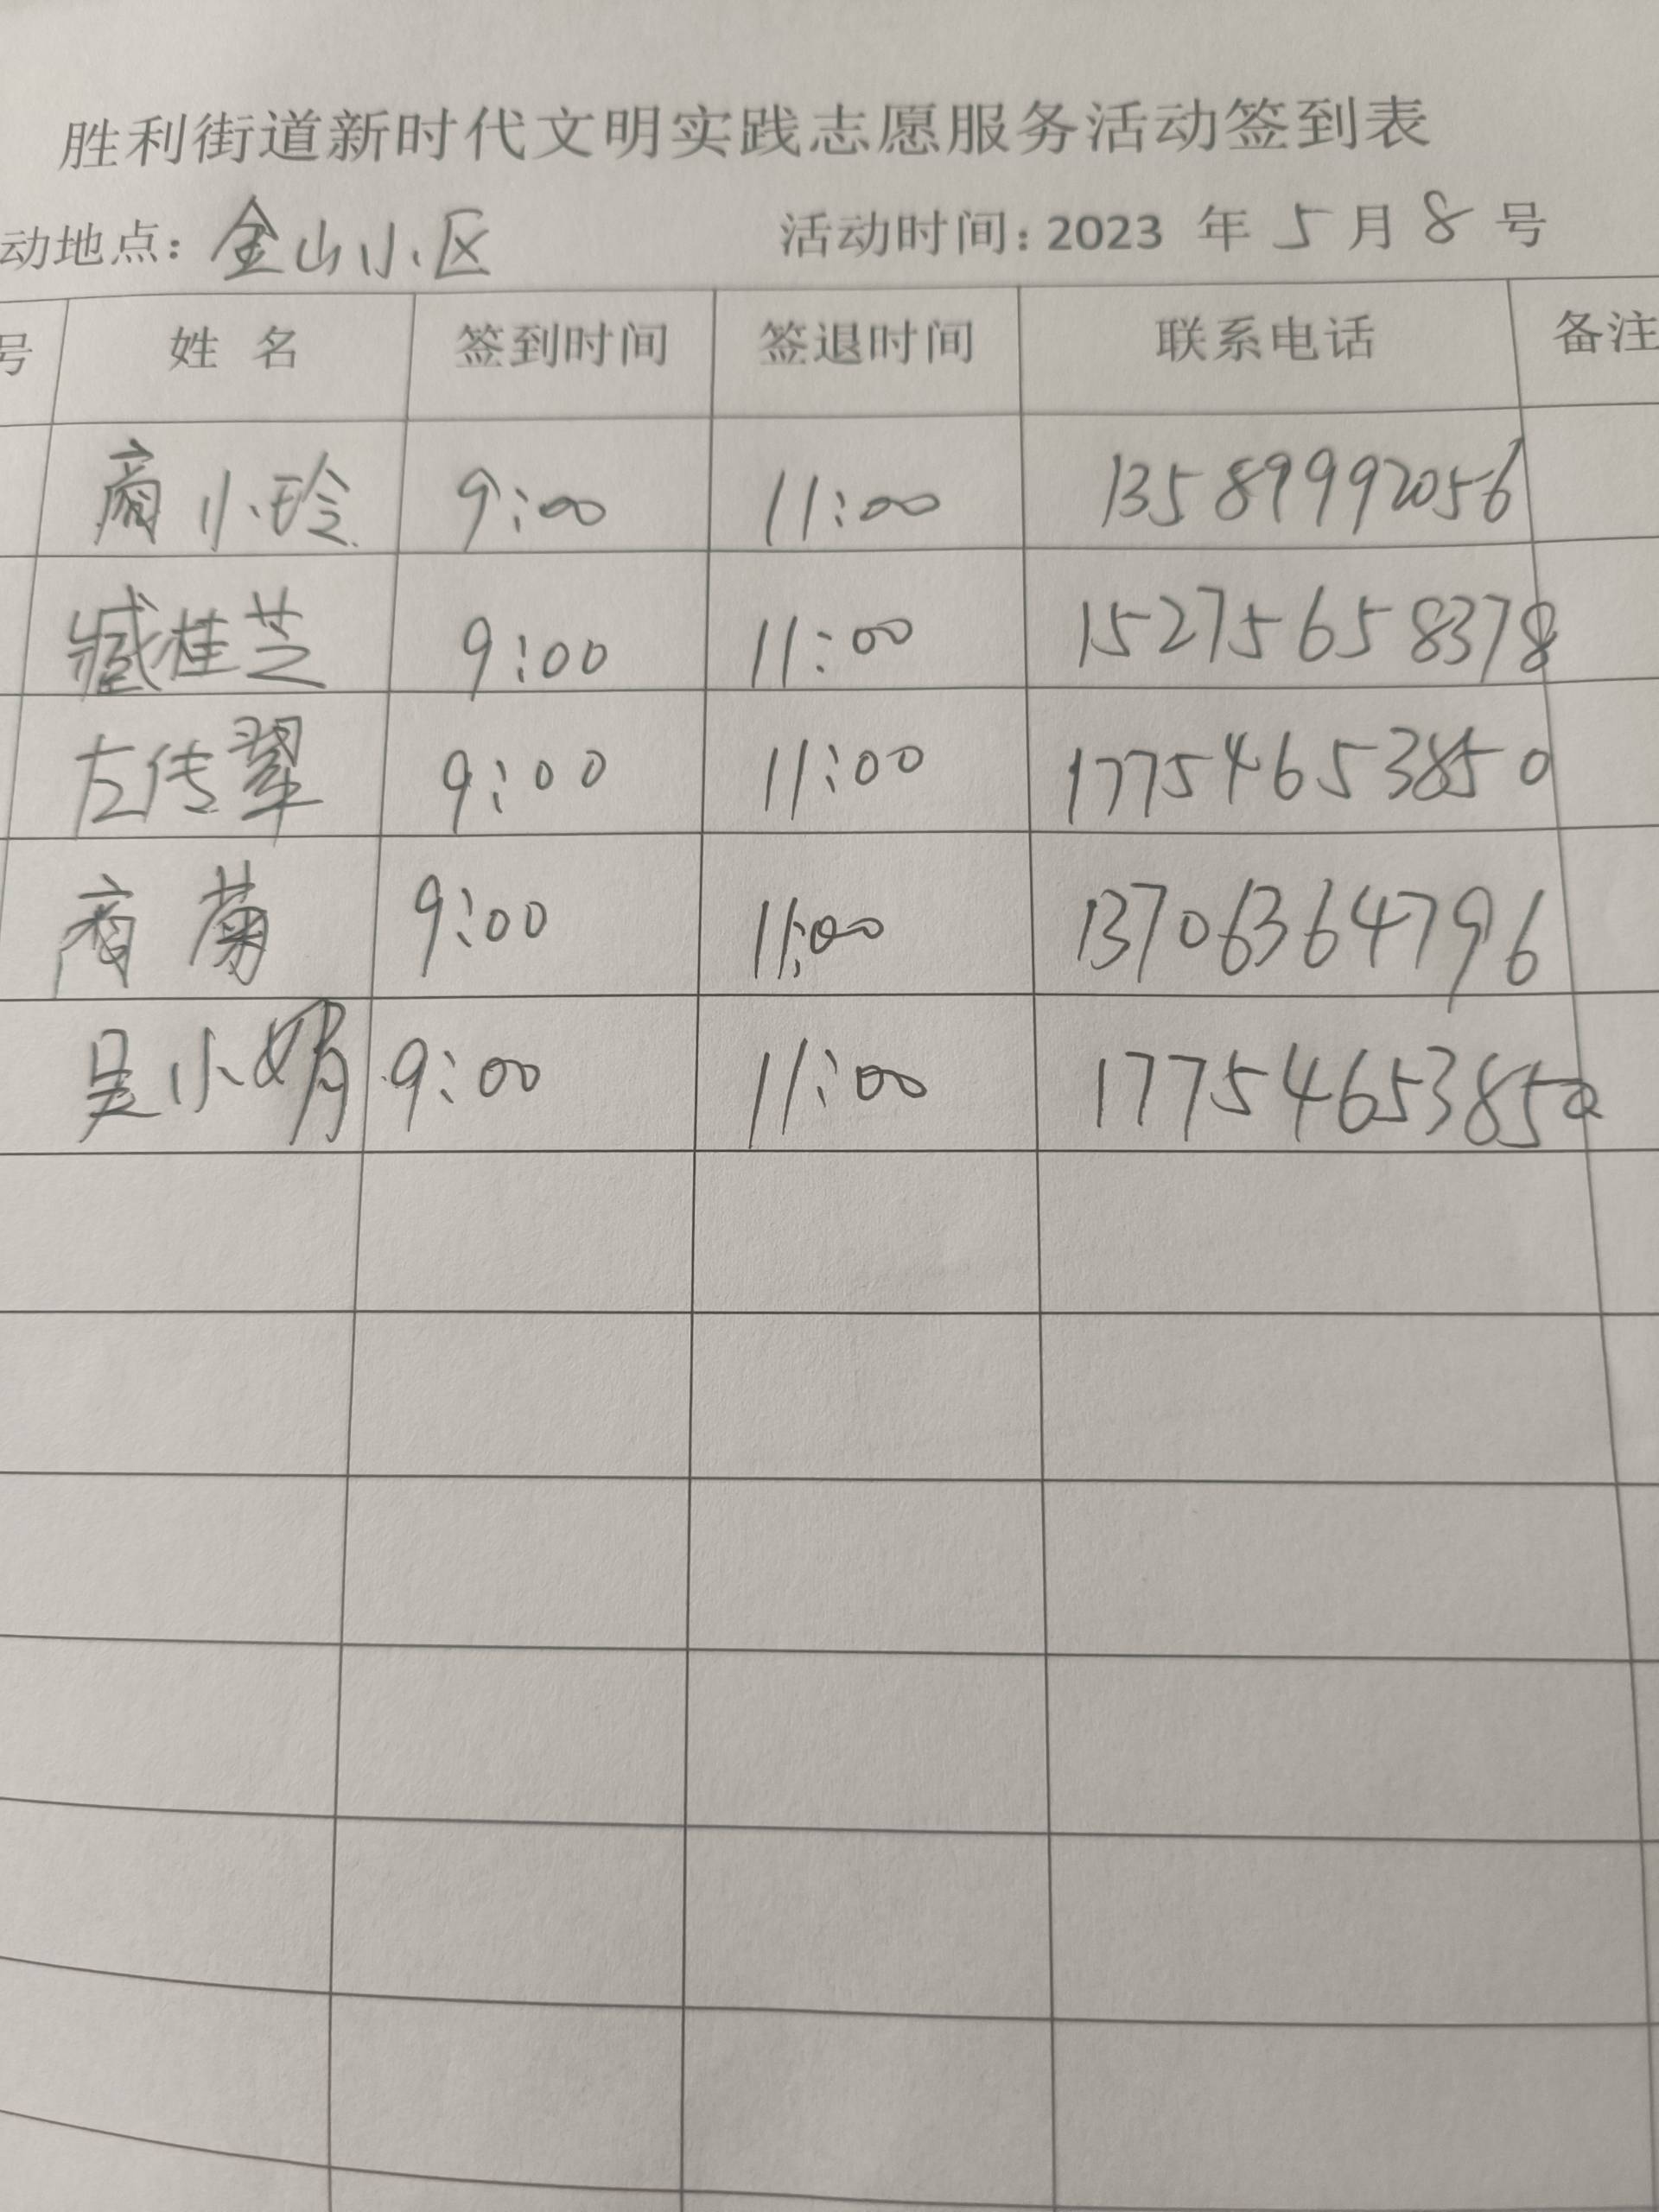 胜利街道新时代文明实践志愿服务活动签到表
动地点：金山小区 活动时间：2023 年 5 月 8 号
号 姓 名 签到时间 签退时间 联系电话 备注
商小玲 9:00 11:00 13589992056
臧桂芝 9:00 11:00 15275658378
左传翠 9:00 11:00 17754653850
商菊 9:00 11:00 13706364796
吴小娟 9:00 11:00 17754653850